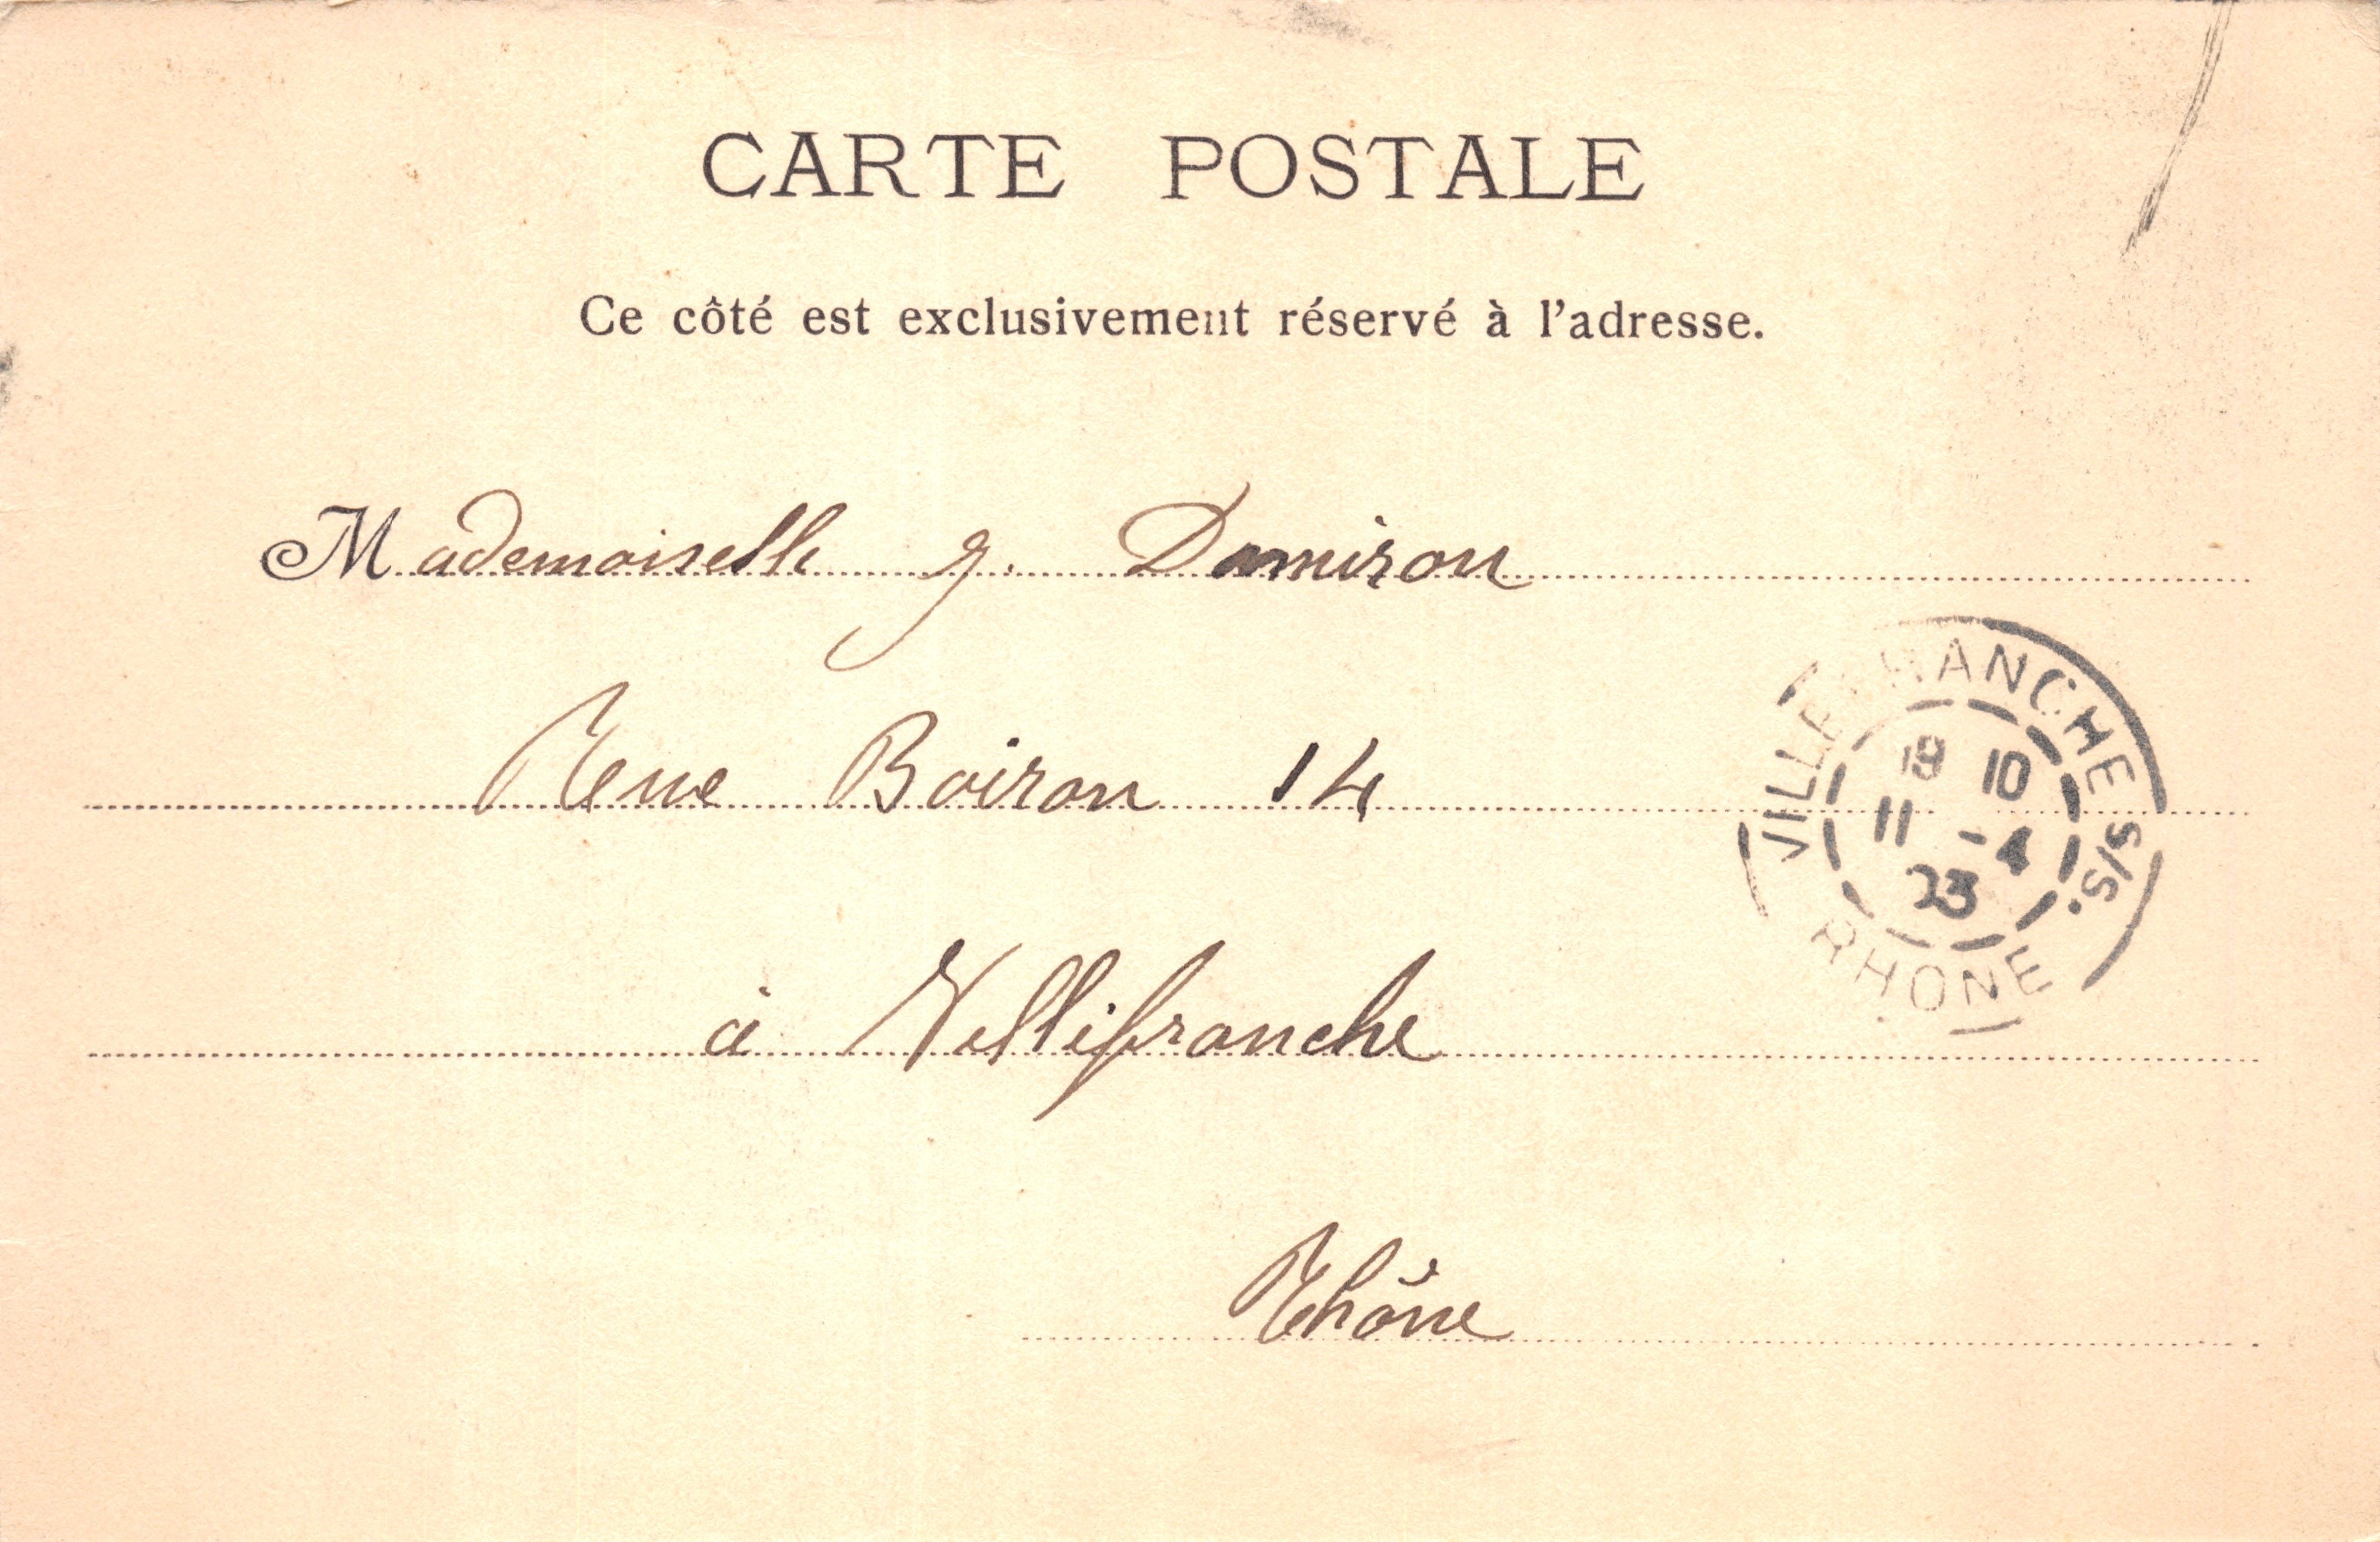 CARTE POSTALE
Ce côté est exclusivement réservé à l'adresse.
Mademoiselle J. Damiron
Rue Boiron 14
à Villefranche
Rhône
VILLEFRANCHE S/S.
10
11 -4
23
RHONE